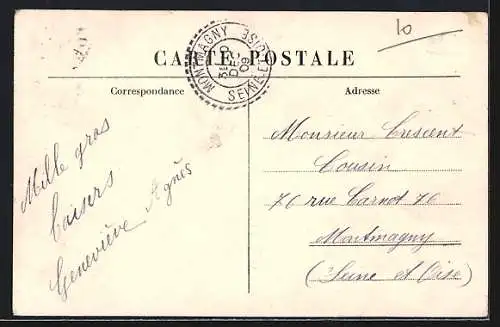 10
CARTE POSTALE
MONTMAGNY SEINE-ET-OISE
3E
DEC
09
Correspondance
Adresse
Mille gros
baisers
Geneviève Agnès
Monsieur Crescent
Cousin
76 rue Carnot 76
Montmagny
(Seine et Oise)